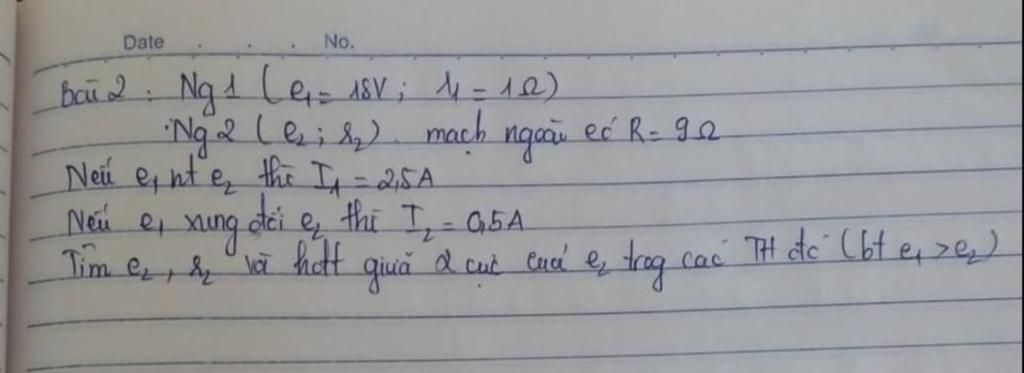 Date . . . No.
Bài 2 : Ng 1 ( e₁ = 18V ; r₁ = 1Ω )
Ng 2 ( e₂ ; r₂ ) mạch ngoài có R = 9Ω
Nếu e₁ nt e₂ thì I₁ = 2,5A
Nếu e₁ xung đối e₂ thì I₂ = 0,5A
Tìm e₂ , r₂ và hđt giữa 2 cực của e₂ trog các TH đó (bt e₁ > e₂ )